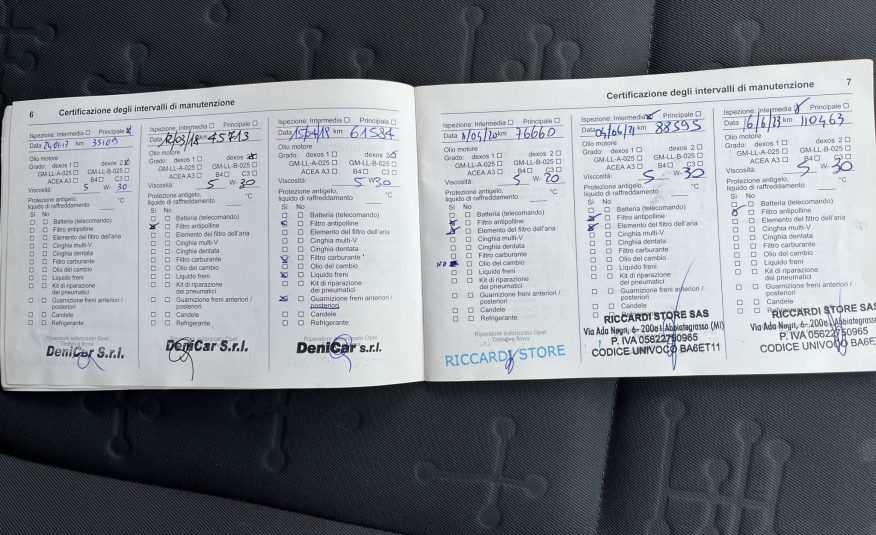 6 Certificazione degli intervalli di manutenzione
Ispezione: Intermedia Principale
Data 24.01.17 km 35109
Olio motore
Grado: dexos 1 dexos 2
GM-LL-A-025 GM-LL-B-025
ACEA A3 B4 C3
Viscosità: 5 W- 30
Protezione antigelo,
liquido di raffreddamento °C
Sì No
Batteria (telecomando)
Filtro antipolline
Elemento del filtro dell'aria
Cinghia multi-V
Cinghia dentata
Filtro carburante
Olio del cambio
Liquido freni
Kit di riparazione
dei pneumatici
Guarnizione freni anteriori /
posteriori
Candele
Refrigerante
Riparatore autorizzato Opel
Timbro e firma
DeniCar S.r.l.
Ispezione: Intermedia Principale
Data 12/03/18 km 45713
Olio motore
Grado: dexos 1 dexos
GM-LL-A-025 GM-LL-B-025
ACEA A3 B4 C3
Viscosità: 5 W- 30
Protezione antigelo,
liquido di raffreddamento °C
Sì No
Batteria (telecomando)
Filtro antipolline
Elemento del filtro dell'aria
Cinghia multi-V
Cinghia dentata
Filtro carburante
Olio del cambio
Liquido freni
Kit di riparazione
dei pneumatici
Guarnizione freni anteriori /
posteriori
Candele
Refrigerante
Riparatore autorizzato Opel
DeniCar S.r.l.
Ispezione: Intermedia Principale
Data km 61584
Olio motore
Grado: dexos 1 dexos 2
GM-LL-A-025 GM-LL-B-025
ACEA A3 B4 C3
Viscosità: 5 W 30
Protezione antigelo,
liquido di raffreddamento °C
Sì No
Batteria (telecomando)
Filtro antipolline
Elemento del filtro dell'aria
Cinghia multi-V
Cinghia dentata
Filtro carburante
Olio del cambio
Liquido freni
Kit di riparazione
dei pneumatici
Guarnizione freni anteriori /
posteriori
Candele
Refrigerante
Riparatore autorizzato Opel
DeniCar s.r.l.
Certificazione degli intervalli di manutenzione 7
Ispezione: Intermedia Principale
Data /04/20 km 76660
Olio motore
Grado: dexos 1 dexos 2
GM-LL-A-025 GM-LL-B-025
ACEA A3 B4 C3
Viscosità: 5 W- 20
Protezione antigelo,
liquido di raffreddamento °C
Sì No
Batteria (telecomando)
Filtro antipolline
Elemento del filtro dell'aria
Cinghia multi-V
Cinghia dentata
Filtro carburante
NO Olio del cambio
Liquido freni
Kit di riparazione
dei pneumatici
Guarnizione freni anteriori /
posteriori
Candele
Refrigerante
Riparatore autorizzato Opel
Timbro e firma
RICCARDI STORE
Ispezione: Intermedia Principale
Data 04/06/21 km 88595
Olio motore
Grado: dexos 1 dexos 2
GM-LL-A-025 GM-LL-B-025
ACEA A3 B4 C3
Viscosità: 5 W- 30
Protezione antigelo,
liquido di raffreddamento °C
Sì No
Batteria (telecomando)
Filtro antipolline
Elemento del filtro dell'aria
Cinghia multi-V
Cinghia dentata
Filtro carburante
Olio del cambio
Liquido freni
Kit di riparazione
dei pneumatici
Guarnizione freni anteriori /
posteriori
RICCARDI STORE SAS
Via Ada Negri, 6- 20081 Abbiategrasso (MI)
P. IVA 05622750965
CODICE UNIVOCO BA6ET11
Ispezione: Intermedia Principale
Data 16/6/23 km 110463
Olio motore
Grado: dexos 1 dexos 2
GM-LL-A-025 GM-LL-B-025
ACEA A3 B4 C3
Viscosità: 5 W- 30
Protezione antigelo,
liquido di raffreddamento °C
Sì No
Batteria (telecomando)
Filtro antipolline
Elemento del filtro dell'aria
Cinghia multi-V
Cinghia dentata
Filtro carburante
Olio del cambio
Liquido freni
Kit di riparazione
dei pneumatici
Guarnizione freni anteriori /
posteriori
Candele
RICCARDI STORE SAS
Via Ada Negri, 6- 20081 Abbiategrasso
P. IVA 05622750965
CODICE UNIVOCO BA6ET11